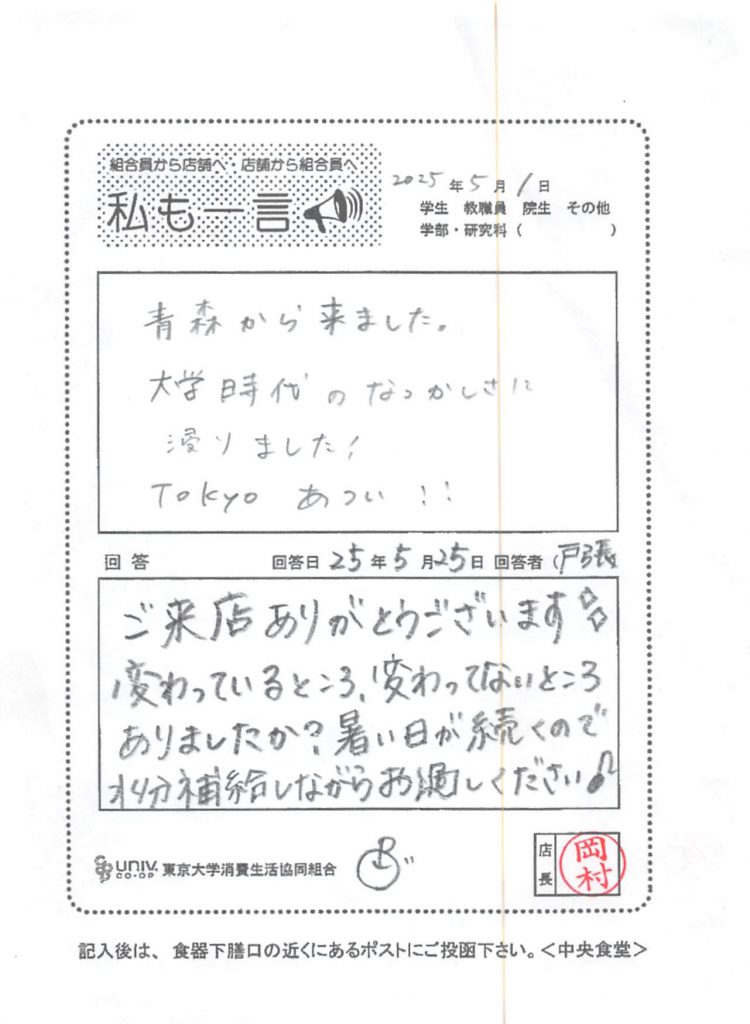 組合員から店舗へ・店舗から組合員へ
私も一言
2025年5月1日
学生 教職員 院生 その他
学部・研究科( )
青森から来ました。
大学時代のなつかしさに
浸りました!
Tokyo あつい!!
回答 回答日25年5月25日 回答者(戸張
ご来店ありがとうございます
変わっているところ、変わってないところ
ありましたか?暑い日が続くので
水分補給しながらお過しください♪
UNIV. CO-OP 東京大学消費生活協同組合
店長 岡村
記入後は、食器下膳口の近くにあるポストにご投函下さい。<中央食堂>